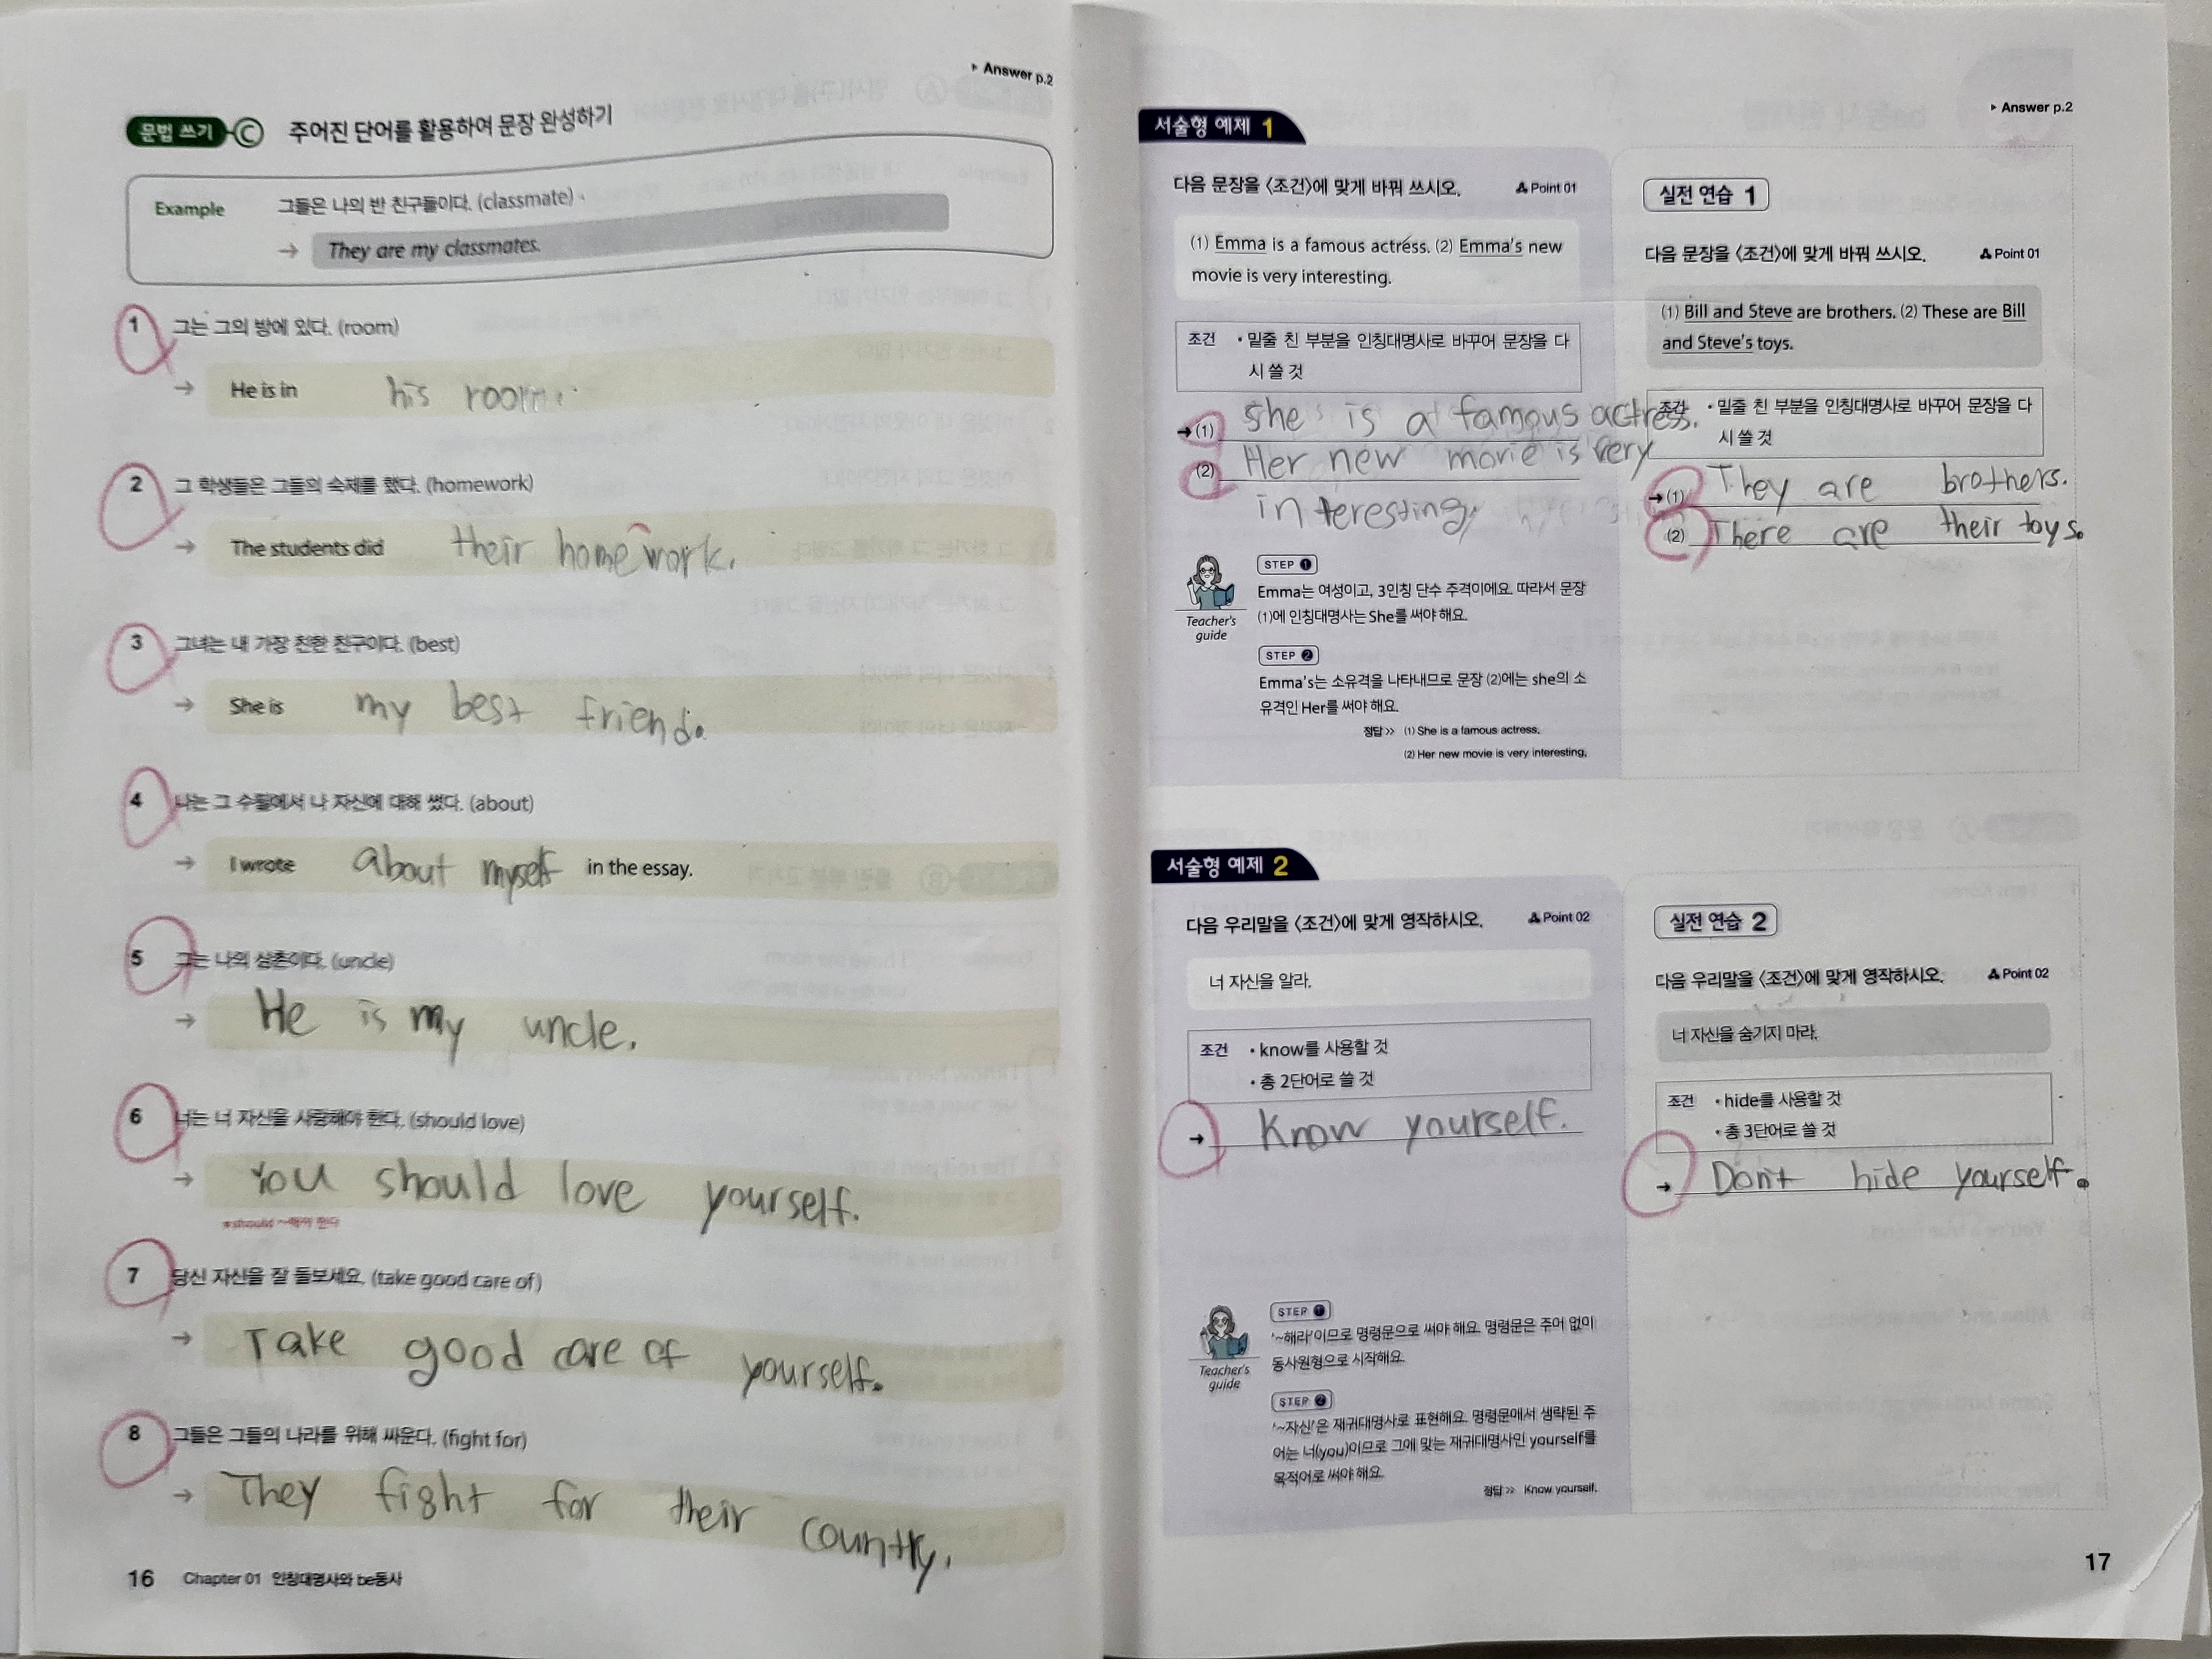 ▸ Answer p.2
문법 쓰기 C 주어진 단어를 활용하여 문장 완성하기
Example 그들은 나의 반 친구들이다. (classmate)
→ They are my classmates.
1 그는 그의 방에 있다. (room)
→ He is in his room.
2 그 학생들은 그들의 숙제를 했다. (homework)
→ The students did their homework.
3 그녀는 내 가장 친한 친구이다. (best)
→ She is my best friend.
4 나는 그 수필에서 나 자신에 대해 썼다. (about)
→ I wrote about myself in the essay.
5 그는 나의 삼촌이다. (uncle)
→ He is my uncle.
6 너는 너 자신을 사랑해야 한다. (should love)
→ You should love yourself.
★should ~해야 한다
7 당신 자신을 잘 돌보세요. (take good care of)
→ Take good care of yourself.
8 그들은 그들의 나라를 위해 싸운다. (fight for)
→ They fight for their country.
16 Chapter 01 인칭대명사와 be동사
▸ Answer p.2
서술형 예제 1
다음 문장을 〈조건〉에 맞게 바꿔 쓰시오. Point 01
(1) Emma is a famous actress. (2) Emma's new
movie is very interesting.
조건 • 밑줄 친 부분을 인칭대명사로 바꾸어 문장을 다
시 쓸 것
→ (1) She is a famous actress.
(2) Her new movie is very
interesting.
Teacher's
guide
STEP 1
Emma는 여성이고, 3인칭 단수 주격이에요. 따라서 문장
(1)에 인칭대명사는 She를 써야 해요.
STEP 2
Emma's는 소유격을 나타내므로 문장 (2)에는 she의 소
유격인 Her를 써야 해요.
정답 >> (1) She is a famous actress.
(2) Her new movie is very interesting.
실전 연습 1
다음 문장을 〈조건〉에 맞게 바꿔 쓰시오. Point 01
(1) Bill and Steve are brothers. (2) These are Bill
and Steve's toys.
조건 • 밑줄 친 부분을 인칭대명사로 바꾸어 문장을 다
시 쓸 것
→ (1) They are brothers.
(2) There are their toys.
서술형 예제 2
다음 우리말을 〈조건〉에 맞게 영작하시오. Point 02
너 자신을 알라.
조건 • know를 사용할 것
• 총 2단어로 쓸 것
→ Know yourself.
Teacher's
guide
STEP 1
'~해라'이므로 명령문으로 써야 해요. 명령문은 주어 없이
동사원형으로 시작해요.
STEP 2
'~자신'은 재귀대명사로 표현해요. 명령문에서 생략된 주
어는 너(you)이므로 그에 맞는 재귀대명사인 yourself를
목적어로 써야 해요.
정답 >> Know yourself.
실전 연습 2
다음 우리말을 〈조건〉에 맞게 영작하시오. Point 02
너 자신을 숨기지 마라.
조건 • hide를 사용할 것
• 총 3단어로 쓸 것
→ Don't hide yourself.
17